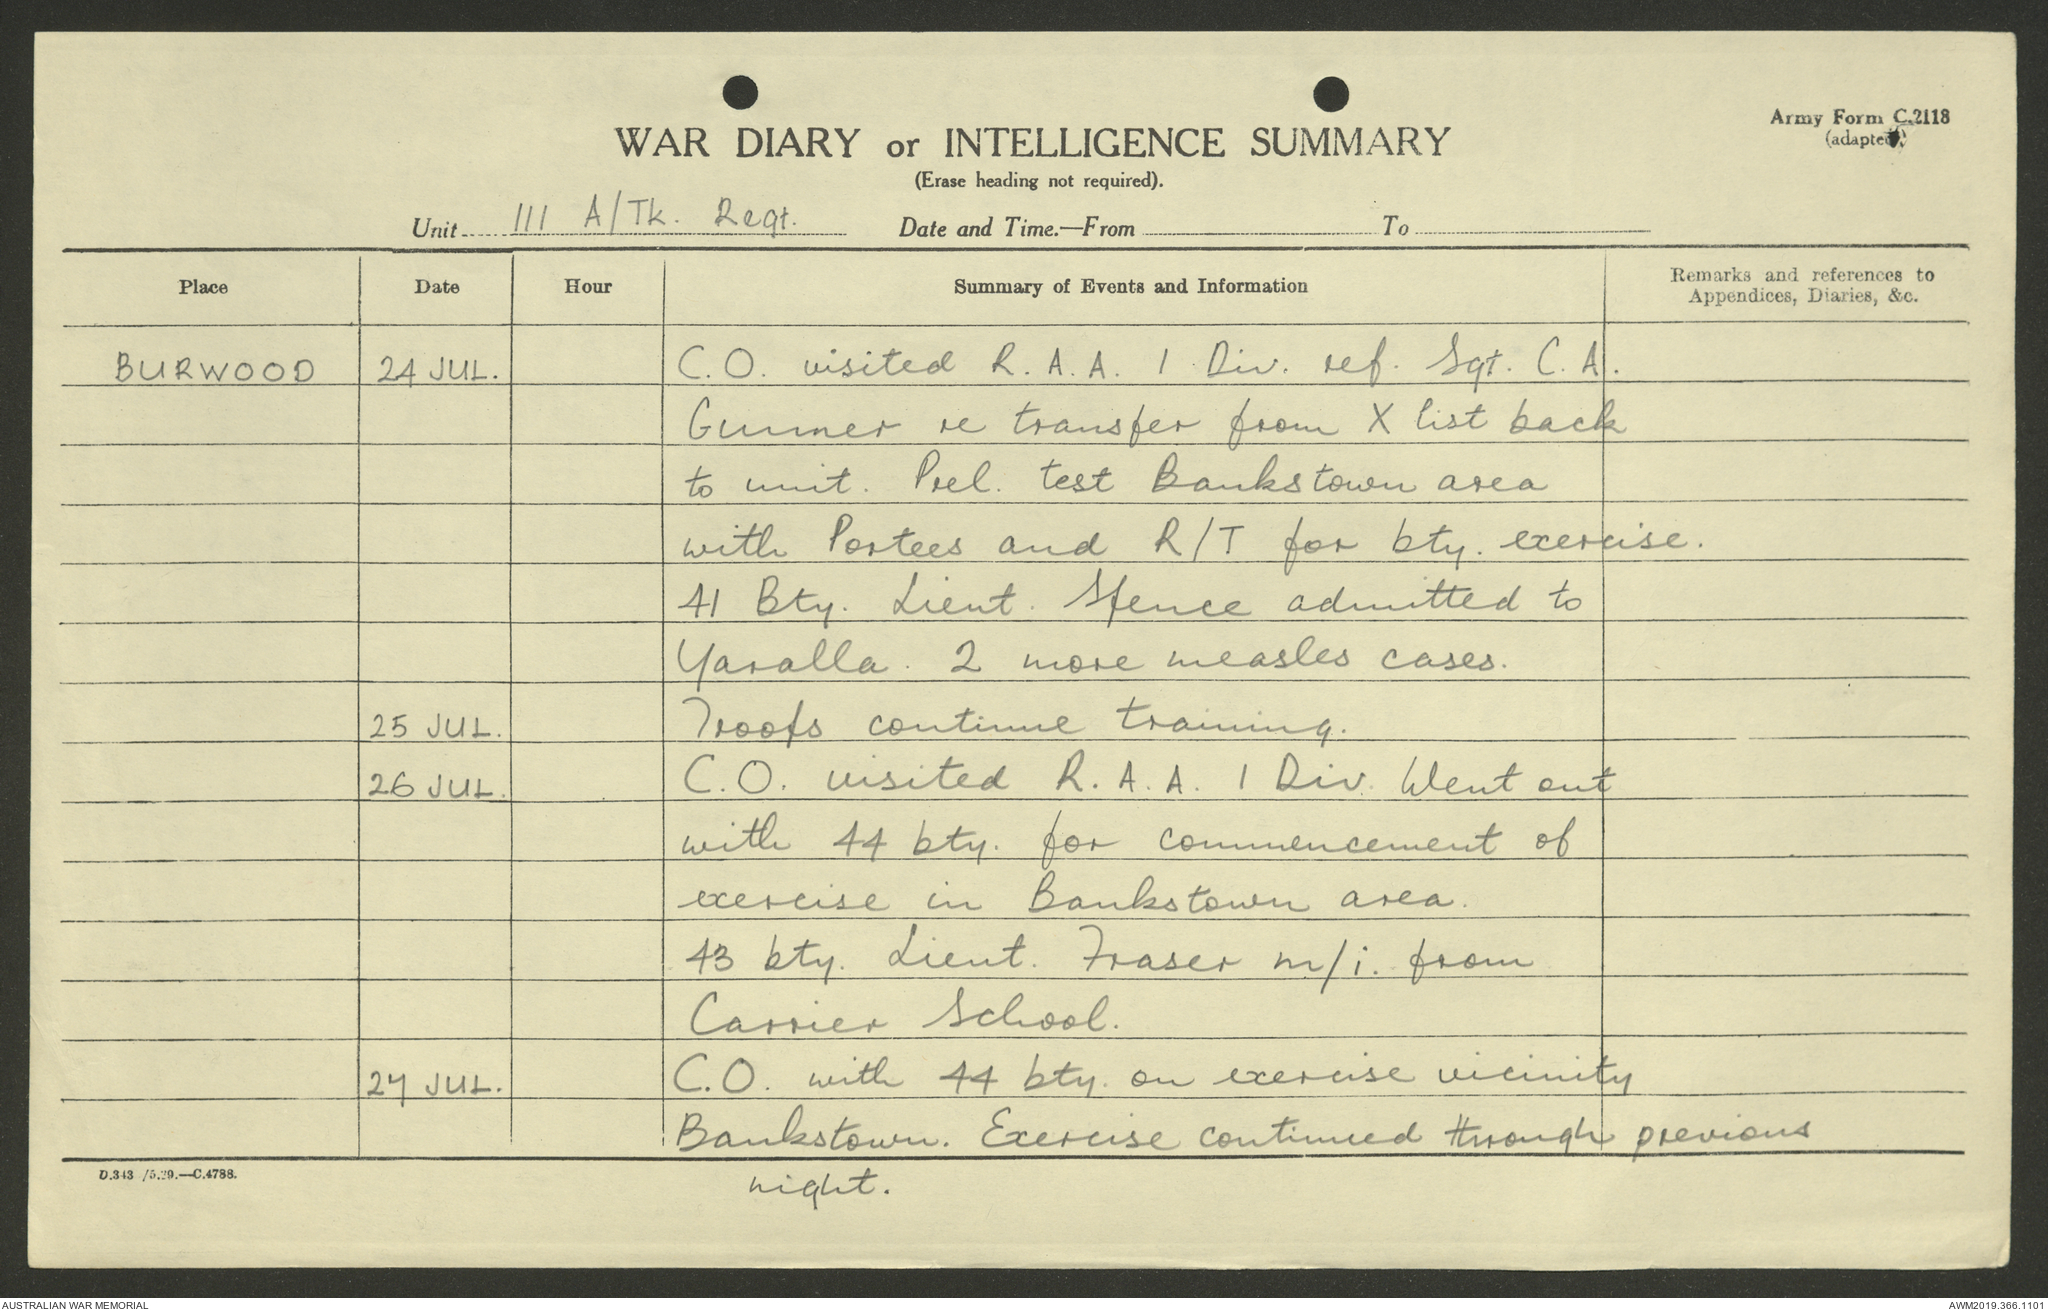 Army Form C.2118
(adapted)
WAR DIARY or INTELLIGENCE SUMMARY
(Erase heading not required).
Unit 111 A/Tk. Regt. Date and Time.—From To
Place Date Hour Summary of Events and Information Remarks and references to Appendices, Diaries, &c.
BURWOOD 24 JUL. C.O. visited R.A.A. 1 Div. ref. Sgt. C.A.
Gunner re transfer from X list back
to unit. Prel. test Bankstown area
with Portees and R/T for bty. exercise.
41 Bty. Lieut. Spence admitted to
Yaralla. 2 more measles cases.
25 JUL. Troops continue training.
26 JUL. C.O. visited R.A.A. 1 Div. Went out
with 44 bty. for commencement of
exercise in Bankstown area.
43 bty. Lieut. Fraser m/i. from
Carrier School.
27 JUL. C.O. with 44 bty. on exercise vicinity
Bankstown. Exercise continued through previous
night.
D.343 /5.39.—C.4788.
AUSTRALIAN WAR MEMORIAL AWM2019.366.1101